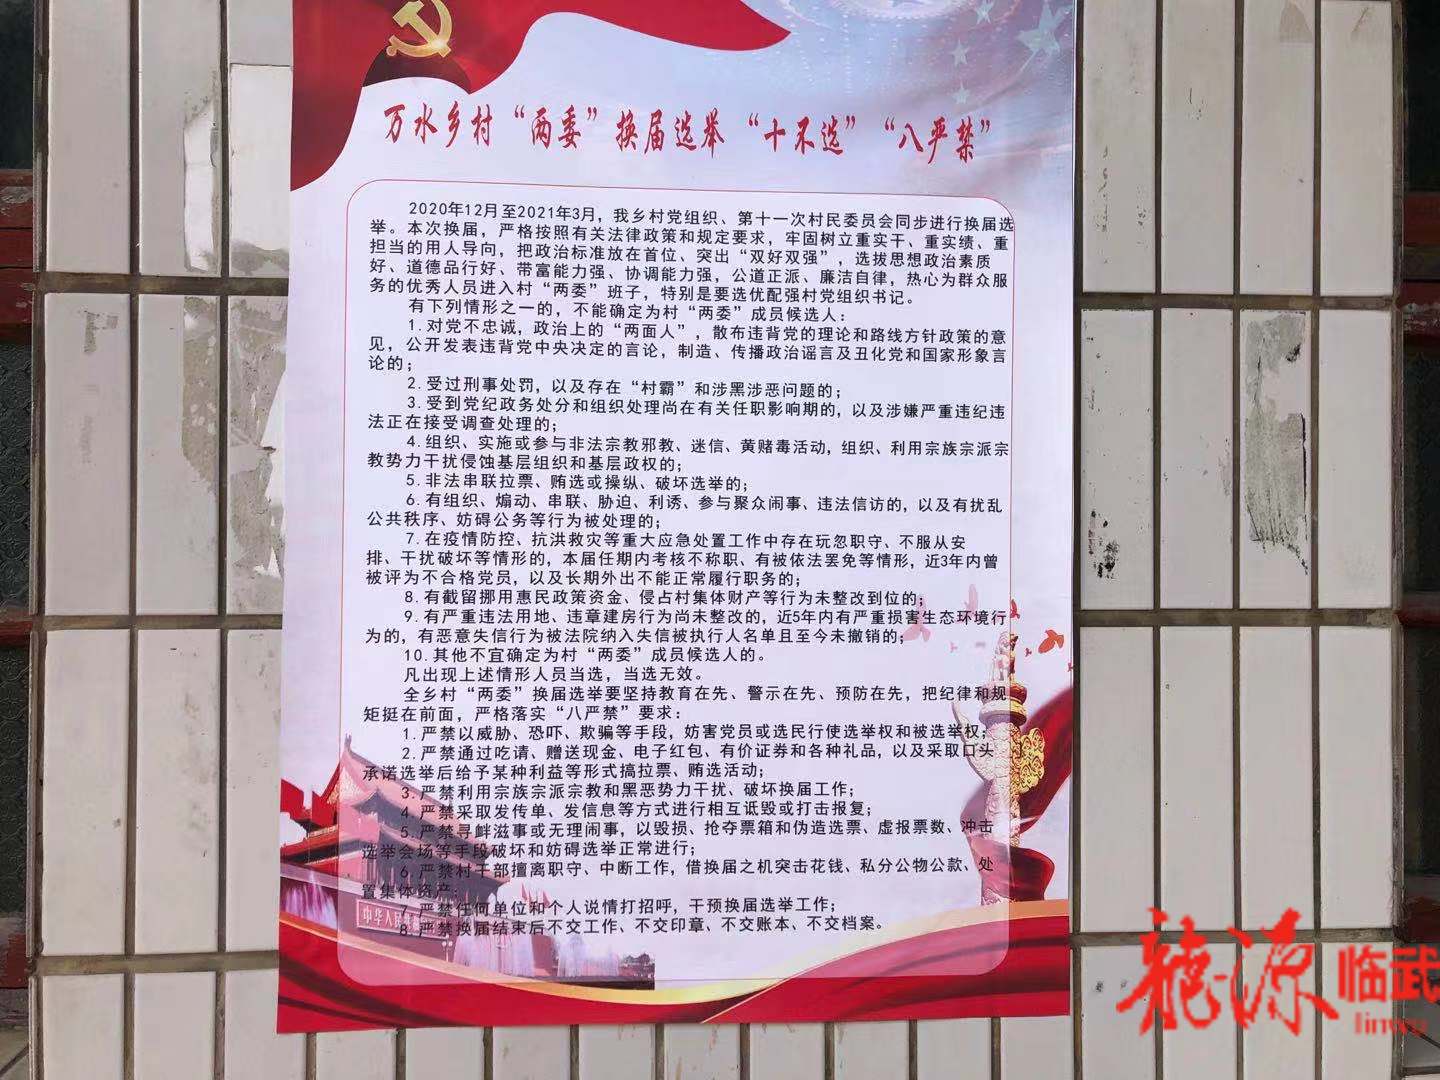 万水乡村“两委”换届选举“十不选”“八严禁”
2020年12月至2021年3月，我乡村党组织、第十一次村民委员会同步进行换届选
举。本次换届，严格按照有关法律政策和规定要求，牢固树立重实干、重实绩、重
担当的用人导向，把政治标准放在首位、突出“双好双强”，选拔思想政治素质
好、道德品行好、带富能力强、协调能力强，公道正派、廉洁自律，热心为群众服
务的优秀人员进入村“两委”班子，特别是要选优配强村党组织书记。
有下列情形之一的，不能确定为村“两委”成员候选人：
1.对党不忠诚，政治上的“两面人”，散布违背党的理论和路线方针政策的意
见，公开发表违背党中央决定的言论，制造、传播政治谣言及丑化党和国家形象言
论的；
2.受过刑事处罚，以及存在“村霸”和涉黑涉恶问题的；
3.受到党纪政务处分和组织处理尚在有关任职影响期的，以及涉嫌严重违纪违
法正在接受调查处理的；
4.组织、实施或参与非法宗教邪教、迷信、黄赌毒活动，组织、利用宗族宗派宗
教势力干扰侵蚀基层组织和基层政权的；
5.非法串联拉票、贿选或操纵、破坏选举的；
6.有组织、煽动、串联、胁迫、利诱、参与聚众闹事、违法信访的，以及有扰乱
公共秩序、妨碍公务等行为被处理的；
7.在疫情防控、抗洪救灾等重大应急处置工作中存在玩忽职守、不服从安
排、干扰破坏等情形的，本届任期内考核不称职、有被依法罢免等情形，近3年内曾
被评为不合格党员，以及长期外出不能正常履行职务的；
8.有截留挪用惠民政策资金、侵占村集体财产等行为未整改到位的；
9.有严重违法用地、违章建房行为尚未整改的，近5年内有严重损害生态环境行
为的，有恶意失信行为被法院纳入失信被执行人名单且至今未撤销的；
10.其他不宜确定为村“两委”成员候选人的。
凡出现上述情形人员当选，当选无效。
全乡村“两委”换届选举要坚持教育在先、警示在先、预防在先，把纪律和规
矩挺在前面，严格落实“八严禁”要求：
1.严禁以威胁、恐吓、欺骗等手段，妨害党员或选民行使选举权和被选举权；
2.严禁通过吃请、赠送现金、电子红包、有价证券和各种礼品，以及采取口头
承诺选举后给予某种利益等形式搞拉票、贿选活动；
3.严禁利用宗族宗派宗教和黑恶势力干扰、破坏换届工作；
4.严禁采取发传单、发信息等方式进行相互诋毁或打击报复；
5.严禁寻衅滋事或无理闹事，以毁损、抢夺票箱和伪造选票、虚报票数、冲击
选举会场等手段破坏和妨碍选举正常进行；
6.严禁村干部擅离职守、中断工作，借换届之机突击花钱、私分公物公款、处
置集体资产；
7.严禁任何单位和个人说情打招呼，干预换届选举工作；
8.严禁换届结束后不交工作、不交印章、不交账本、不交档案。
中华人民
龙源临武
linwu